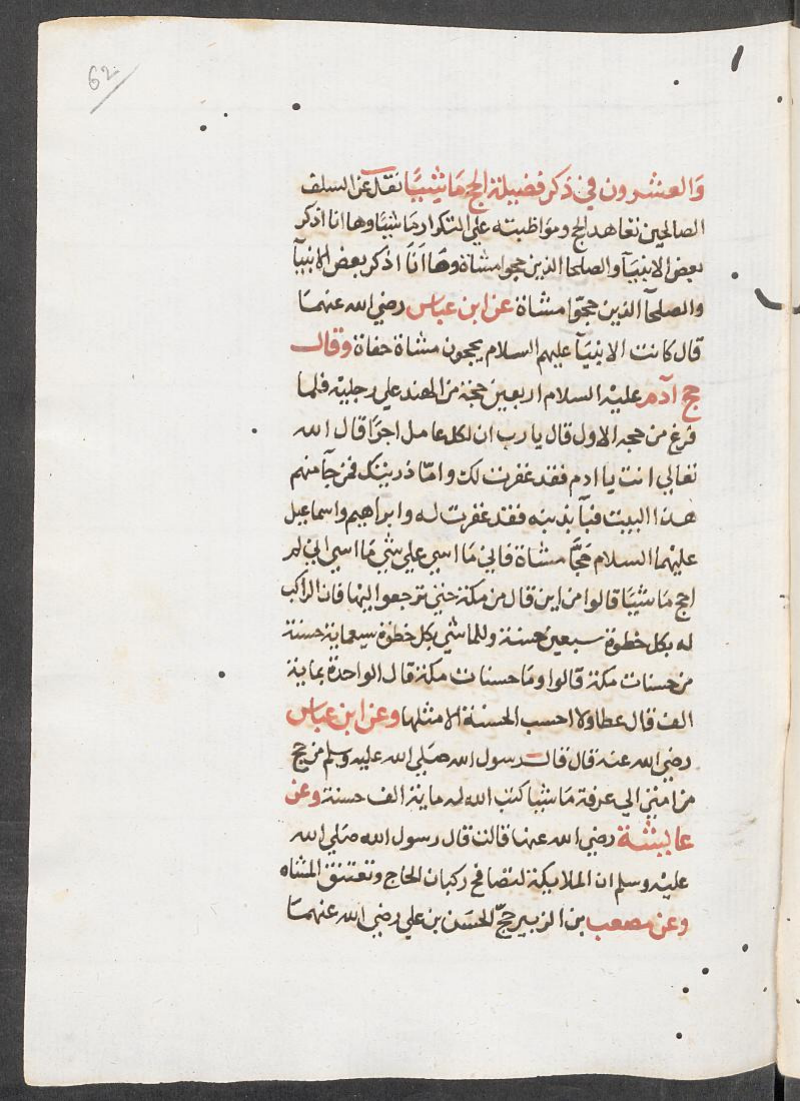 62
والعشرون في ذكر فضيلة الحج ماشيًا نقل عن السلف
الصالحين تعاهد الحج ومواظبته علي التكرار ماشيا وها انا اذكر
بعض الانبيآ والصلحا الذين حجوا مشاة وها انا اذكر بعض الانبيآ
والصلحآ الذين حجّوا مشاة عن ابن عباس رضي الله عنهما
قال كانت الانبيآ عليهم السلام يحجون مشاة حفاة وقال
حج آدم عليه السلام اربعين حجة من الهند علي رجليه فلما
فرغ من حجه الاول قال يا رب ان لكل عامل اجرًا قال الله
تعالي انت يا ادم فقد غفرت لك وامّا ذريتك فمن جآ منهم
هذا البيت فبآ بذنبه فقد غفرت له وابراهيم واسماعيل
عليهما السلام حجَّا مشاة فاني ما اسي علي شي ما اسي اني لم
احج ماشيًا قالوا من اين قال من مكة حتى ترجعوا اليها فان الراكب
له بكل خطوة سبعين حسنة وللماشي بكل خطوة سبعماية حسنة
من حسنات مكة قالوا وما حسنات مكة قال الواحدة بماية
الف قال عطا ولا احسب الحسنة الا مثلها وعن ابن عباس
رضي الله عنه قال قال رسول الله صلي الله عليه وسلم من حج
من امتي الي عرفة ماشيا كتب الله له ماية الف حسنة وعن
عايشة رضي الله عنها قالت قال رسول الله صلي الله
عليه وسلم ان الملايكة لتصافح ركبان الحاج وتعتنق المشاه
وعن مصعب بن الزبير حجّ الحسن بن علي رضي الله عنهما